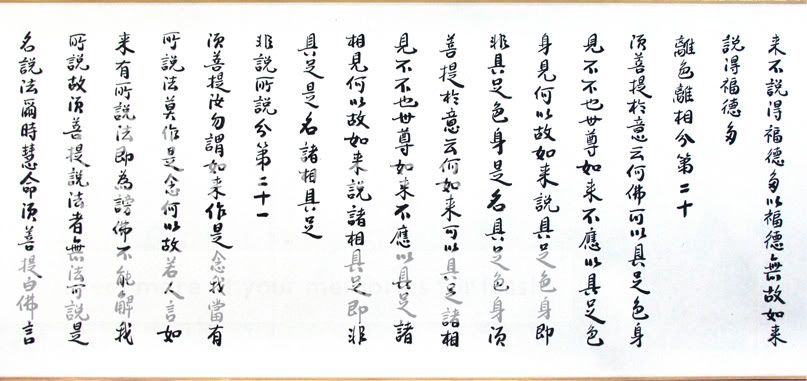 来不説得福徳多以福徳無故如来
説得福徳多
離色離相分第二十
須菩提於意云何佛可以具足色身
見不不也世尊如来不應以具足色
身見何以故如来説具足色身即
非具足色身是名具足色身須
菩提於意云何如来可以具足諸相
見不不也世尊如来不應以具足諸
相見何以故如来説諸相具足即非
具足是名諸相具足
非説所説分第二十一
須菩提汝勿謂如来作是念我當有
所説法莫作是念何以故若人言如
来有所説法即為謗佛不能解我
所説故須菩提説法者無法可説是
名説法爾時慧命須菩提白佛言